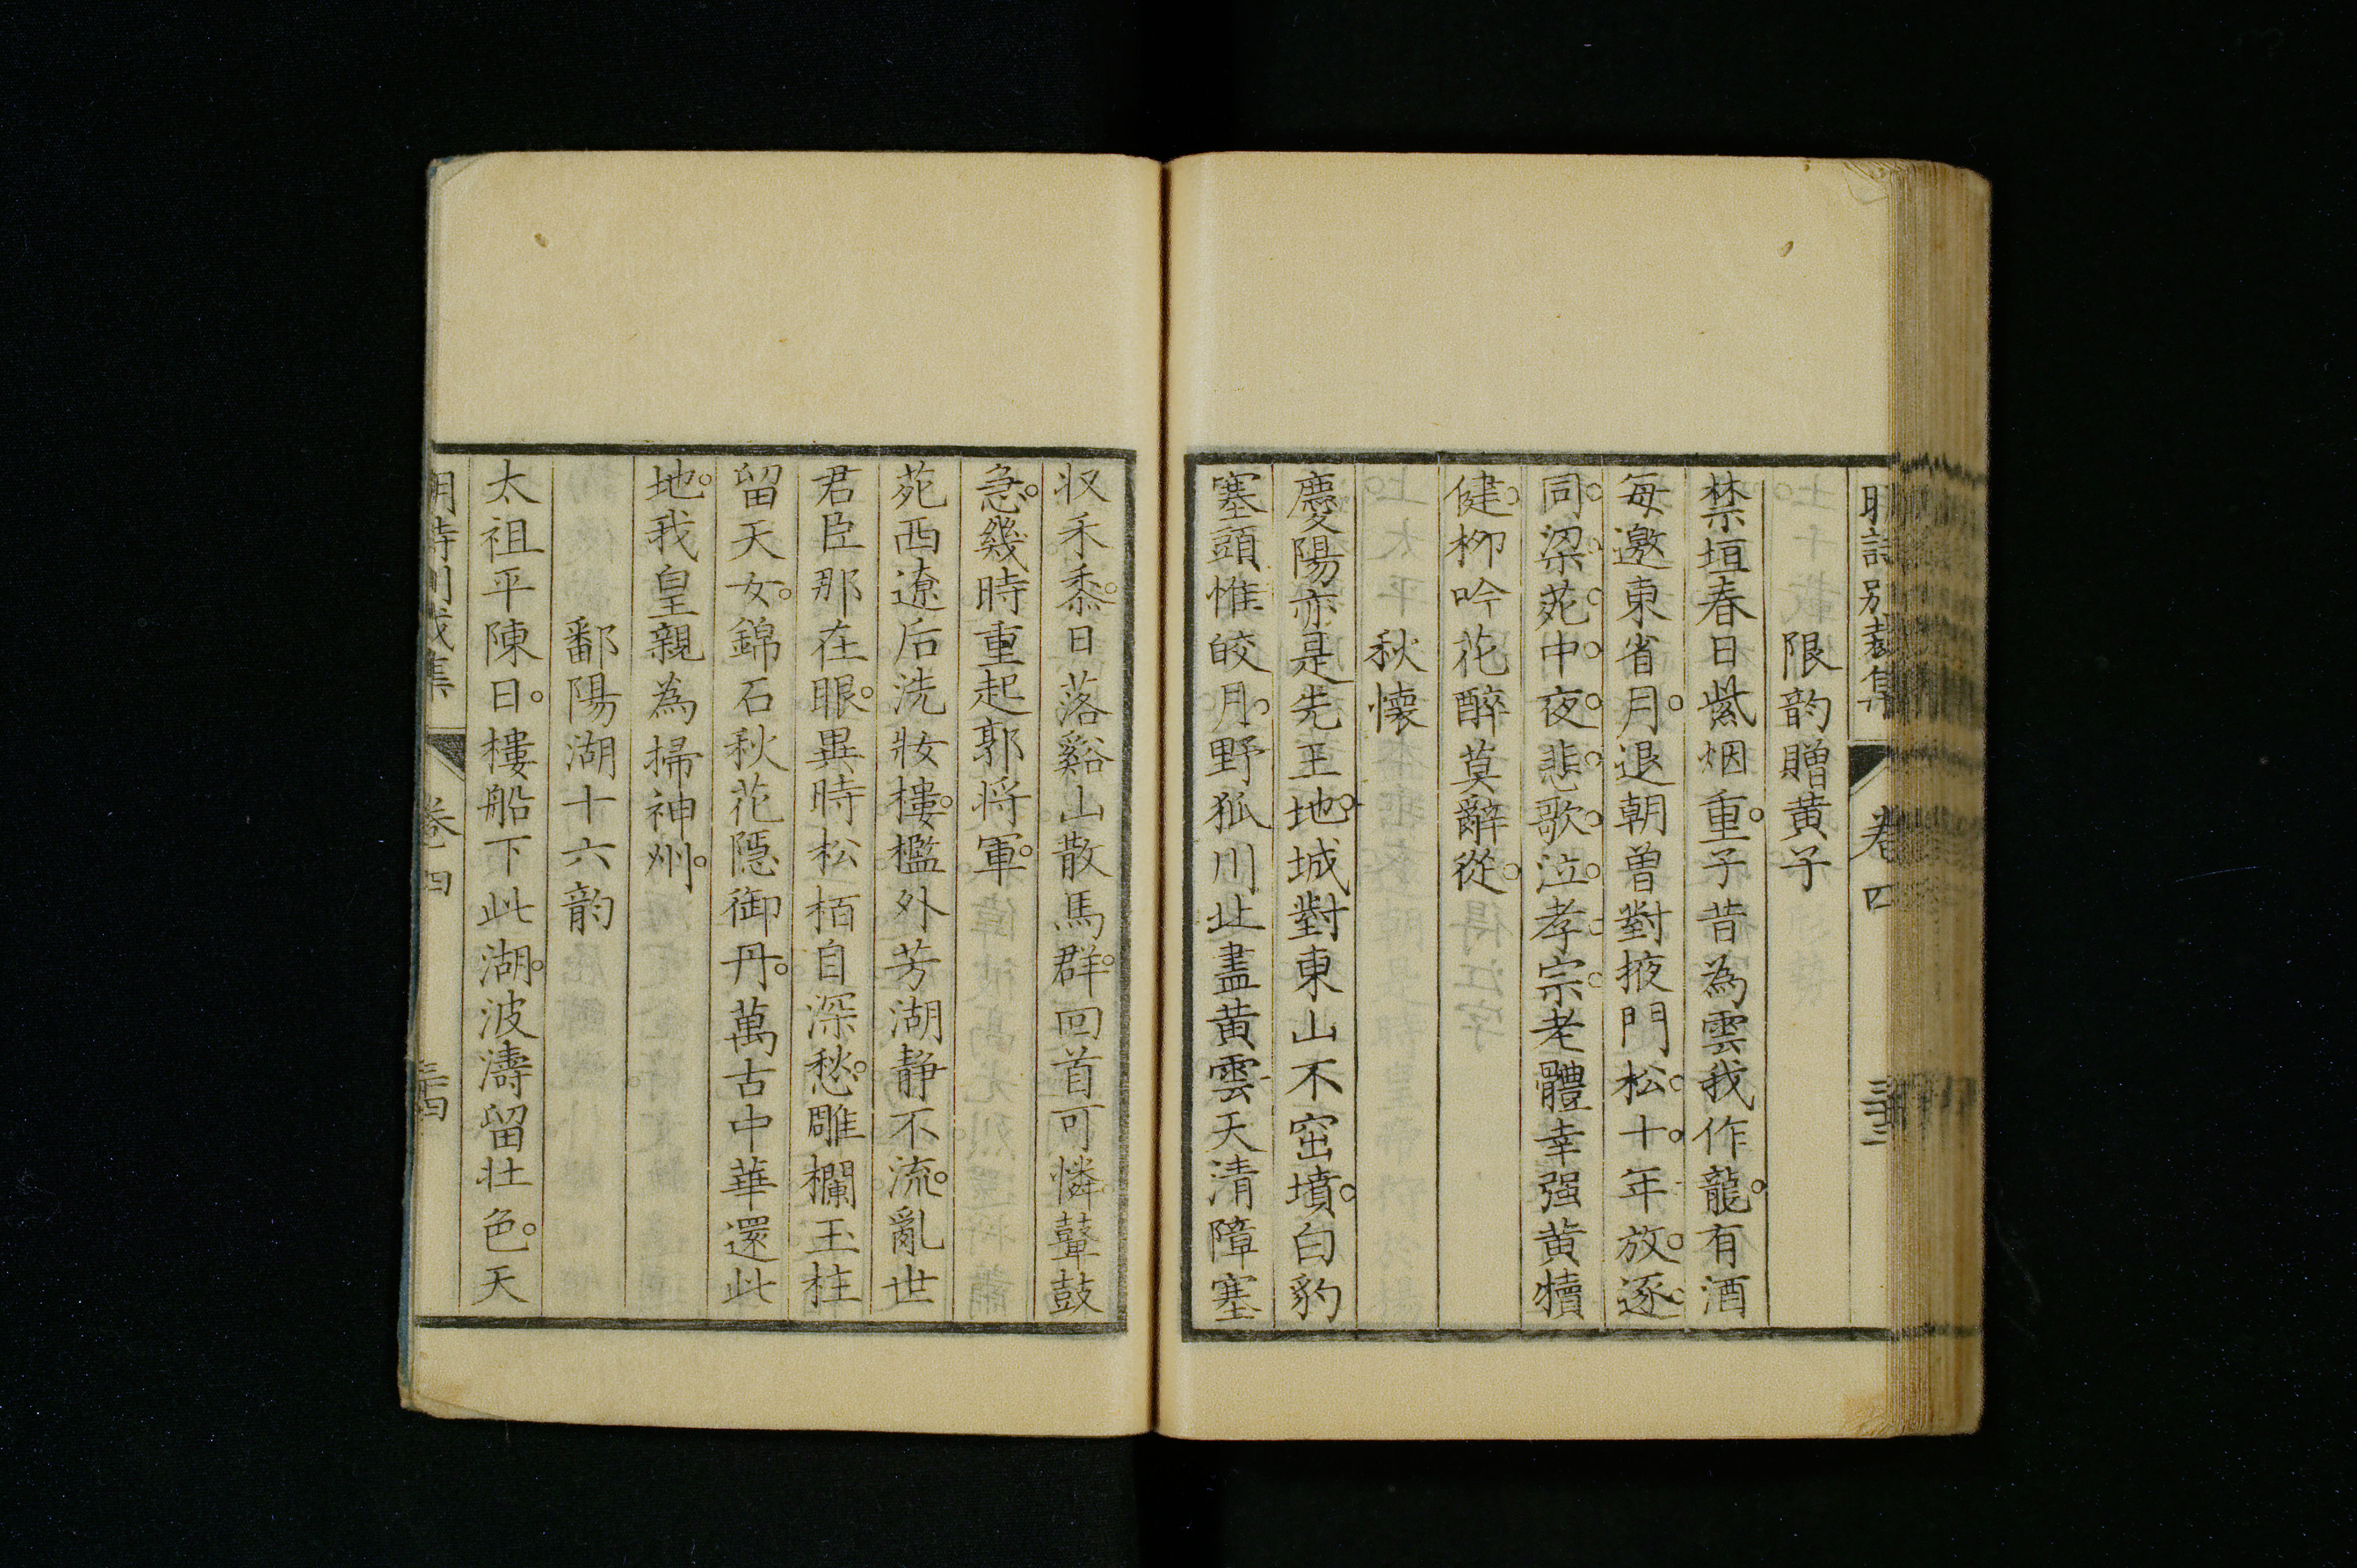 明詩別裁集 卷四
限韵贈黄子
禁垣春日紫烟重。子昔為雲我作龍。有酒
每邀東省月。退朝曽對掖門松。十年放逐
同梁苑。中夜悲歌泣孝宗。老體幸强黄犢
健。柳吟花醉莫辭從。
秋懐
慶陽亦是先王地。城對東山不窋墳。白豹
塞頭惟皎月。野狐川北盡黄雲。天清障塞
收禾黍。日落谿山散馬群。回首可憐鼙鼓
急。幾時重起郭将軍。
苑西遼后洗妝樓。檻外芳湖静不流。亂世
君臣那在眼。異時松栢自深愁。雕欄玉柱
留天女。錦石秋花隠御舟。萬古中華還此
地。我皇親為掃神州。
鄱陽湖十六韵
太祖平陳日。樓船下此湖。波濤留壮色。天
明詩別裁集 卷四